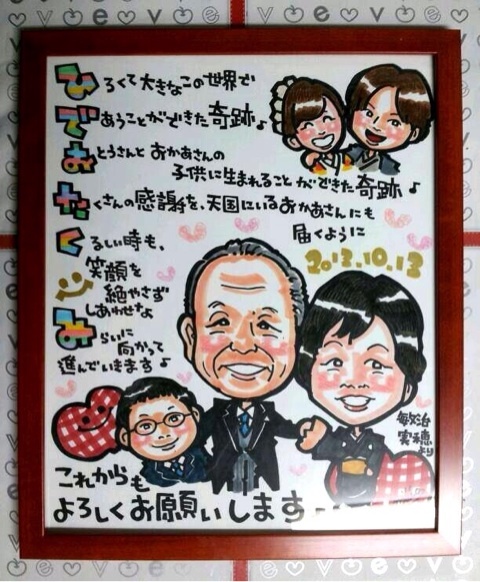 ひろくて大きなこの世界で
であうことができた奇跡♪
おとうさんとおかあさんの
子供に生まれることができた奇跡♪
たくさんの感謝を、天国にいるおかあさんにも
届くように
くるしい時も、
笑顔を
絶やさず
しあわせなよ
みらいに
向かって
進んでいきます♪
2013.10.13
敏治
実穂
より
これからも
よろしくお願いします